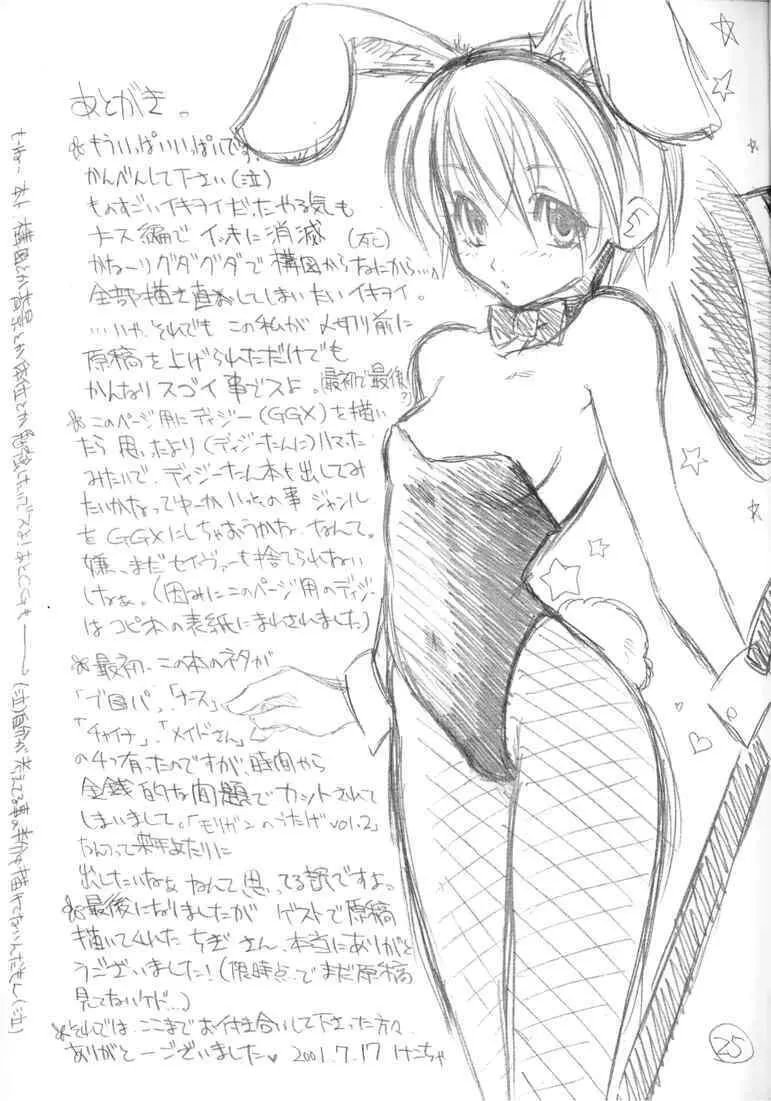 あとがき。
もういっぱいいっぱいです。
かんべんして下さい(泣)
ものすごいイキヲイだったやる気も
ナース編でイッキに消滅(死)
かな〜りグダグダで構図からなにから…
全部描き直ししてしまいたいイキヲイ。
……いや、それでもこの私が〆切り前に
原稿を上げられただけでも
かんなりスゴイ事でスよ。(最初で最後?)
このページ用にディジー(GGX)を描い
たら思ったより(ディジーたんに)ハマった
みたいで、ディジーたん本も出してみ
たいかなってゆーかいっその事ジャンル
をGGXにしちゃおうかな、なんて。
嫌、まだセイヴァーも捨てられない
しなぁ。(因みにこのページ用のディジー
はコピ本の表紙にまわされました)
最初、この本のネタが
「ブ目パ」、「ナース」、
「チャイナ」、「メイドさん」
の4つ有ったのですが、時間から
金銭的な問題でカットされて
しまいまして。「モリガンのうたげvol.2」
なんつって来年あたりに
出したいなぁなんて思ってる訳ですよ。
最後になりましたがゲストで原稿
描いてくれたちぎさん、本当にありがと
うございました!(現時点でまだ原稿
見てないケド…)
それでは、ここまでお付き合いして下さった方々
ありがと〜ございました♥ 2001.7.17 けこちゃ
25